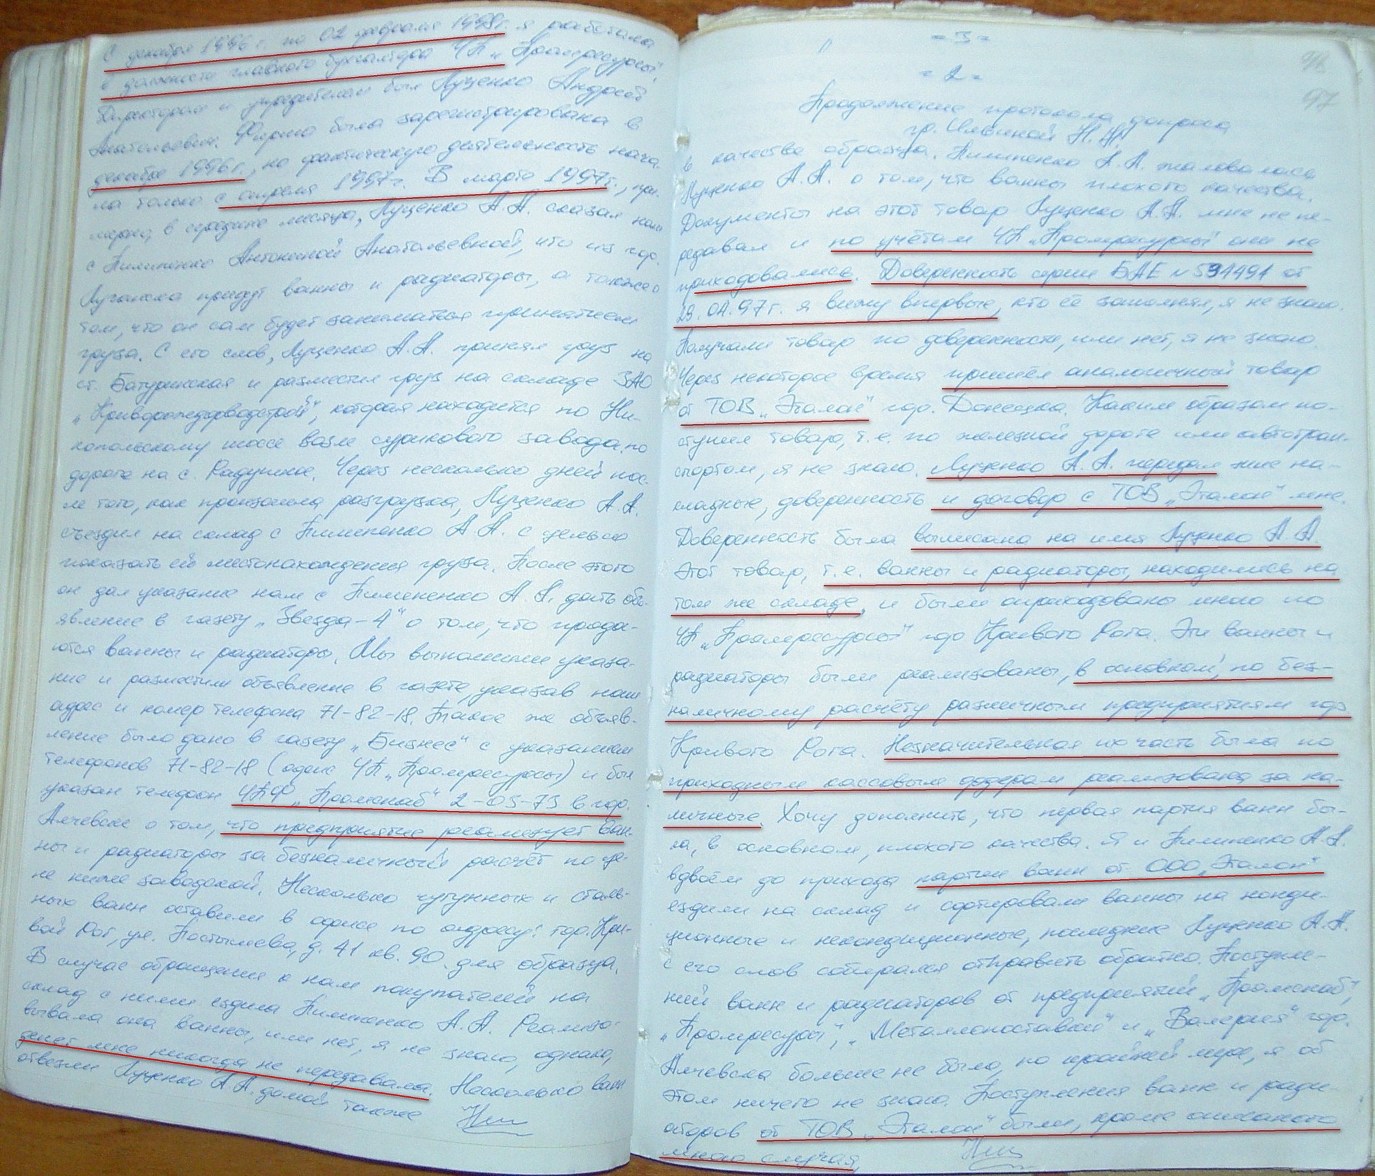 С декабря 1996 г. по 02 февраля 1998 г. я работала
в должности главного бухгалтера ЧП „Промресурсы".
Директором и учредителем был Луценко Андрей
Анатольевич. Фирма была зарегистрирована в
декабре 1996 г., но фактическую деятельность нача-
ла только с апреля 1997 г. В марте 1997 г., при-
мерно, в середине месяца, Луценко А.А. сказал нам
с Пилипенко Антониной Анатольевной, что из гор.
Луганска придут ванны и радиаторы, а также о
том, что он сам будет заниматься принятием
груза. С его слов, Луценко А.А. принял груз на
ст. Батуринская и разместил груз на складе ЗАО
которая находится по Ни-
копольскому шоссе возле сурикового завода по
дороге на с. Радушное. Через несколько дней пос-
ле того, как произошла разгрузка, Луценко А.А.
съездил на склад с Пилипенко А.А. с целью
показать ей местонахождения груза. После этого
он дал указание нам с Пилипенко А.А. дать объ-
явление в газету „Звезда-4" о том, что прода-
ются ванны и радиаторы. Мы выполнили указа-
ние и разместили объявление в газете, указав наш
адрес и номер телефона 71-82-18. Такое же объяв-
ление было дано в газету „Бизнес" с указанием
телефонов 71-82-18 (офис ЧП „Промресурсы") и был
указан телефон ЧПФ „Промснаб" 2-05-75 в гор.
Алчевске о том, что предприятие реализует ван-
ны и радиаторы за безналичный расчёт по це-
не ниже заводской. Несколько чугунных и сталь-
ных ванн оставили в офисе по адресу: гор. Кри-
вой Рог, ул. Постышева, д. 41 кв. 90 для образца.
В случае обращения к нам покупателей на
склад с ними ездила Пилипенко А.А. Реализо-
вывала она ванны, или нет, я не знаю, однако,
денег мне никогда не передавала. Несколько ванн
отвезли Луценко А.А. домой также
- 3 -
- 2 -
96
97
Продолжение протокола допроса
гр. Н.И.
в качестве образца. Пилипенко А.А. жаловалась
Луценко А.А. о том, что ванны плохого качества.
Документы на этот товар Луценко А.А. мне не пе-
редавал и по учётам ЧП „Промресурсы" они не
приходовались. Доверенность серии БАЕ № 591491 от
29.04.97 г. я вижу впервые, кто её заполнял, я не знаю.
Получали товар по доверенности, или нет, я не знаю.
Через некоторое время пришёл аналогичный товар
от ТОВ „Эталон" гор. Донецка. Каким образом по-
ступил товар, т.е. по железной дороге или автотран-
спортом, я не знаю. Луценко А.А. передал мне на-
кладные, доверенность и договор с ТОВ „Эталон" мне.
Доверенность была выписана на имя Луценко А.А.
Этот товар, т.е. ванны и радиаторы, находились на
том же складе, и были оприходованы мною по
ЧП „Промресурсы" гор Кривого Рога. Эти ванны и
радиаторы были реализованы, в основном, по без-
наличному расчёту различным предприятиям гор
Кривого Рога. Незначительная их часть была по
приходным кассовым ордерам реализована за на-
личные. Хочу дополнить, что первая партия ванн бы-
ла, в основном, плохого качества. Я и Пилипенко А.А.
вдвоём до прихода партии ванн от ООО „Эталон"
ездили на склад и сортировали ванны на конди-
ционные и некондиционные, последние Луценко А.А.
с его слов собирался отправить обратно. Поступле-
ний ванн и радиаторов от предприятий „Промснаб",
„Промресурсы", „Металлопоставки" и „Валерия" гор.
Алчевска больше не было, по крайней мере, я об
этом ничего не знаю. Поступления ванн и ради-
аторов от ТОВ „Эталон" были, кроме описанного
мною случая,